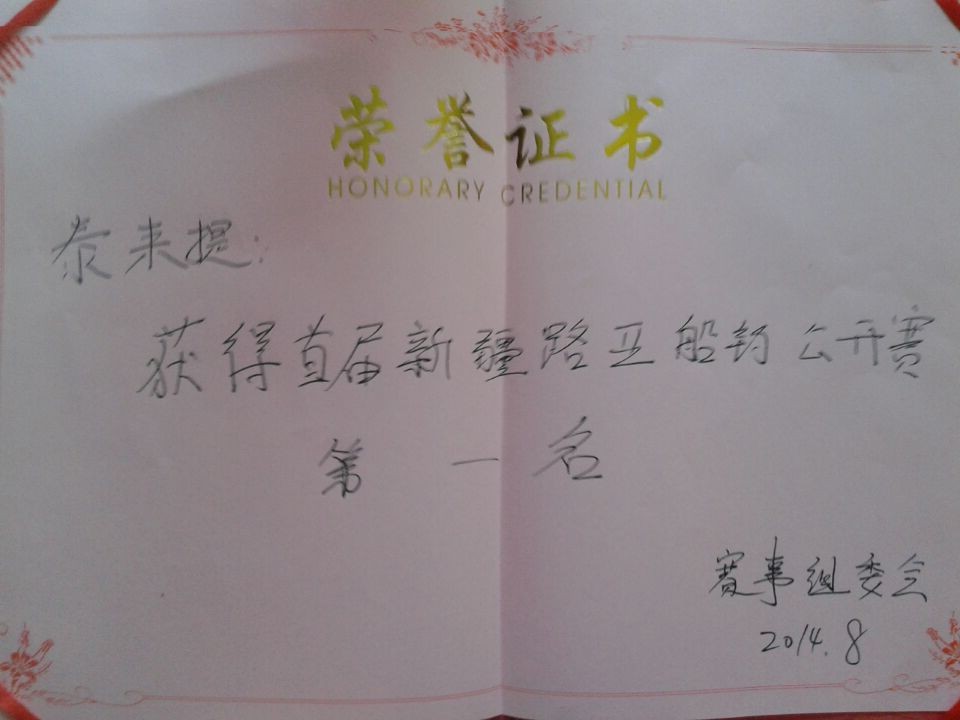 荣誉证书
HONORARY CREDENTIAL
泰来提:
获得首届新疆路亚船钓公开赛
第一名
赛事组委会
2014.8